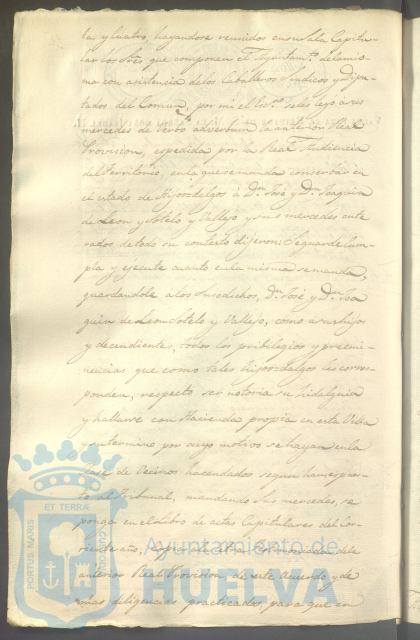 ta, y Cuatro, hayandose reunidos en su Sala Capitu-
lar los Sres. que componen el Ayuntamto. de la mis-
ma con asistencia de los Caballeros Sindicos y Dipu-
tados del Comun, por mi el Esno. se les leyo a sus
mercedes de Verbo adverbum la anterior Real
Provision, espedida por la Real Audiencia
del Territorio, en la que se manda conservar en
el estado de Hijosdalgos á Dn. José y Dn. Joaquin
de Leon y Sotelo y Vallejo y sus mercedes ente
rados de todo su contesto dijeron: Se guarde cum-
pla y ejecute cuanto en la misma se manda,
guardandole a los susodichos, Dn. José y Dn. Joa
quin de Leon Sotelo y Vallejo, como a sus hijos
y decendientes, todos los privilegios y preemi-
nencias que como tales hijosdalgos les corres-
ponden, respecto ser notoria su hidalguia
y hallarse con Hacienda propia en esta Villa
y su termino por cuyo motivo se hayan en la
clase de Vecinos hacendados segun han espues-
to al Tribunal, mandando Sus mercedes, se
ponga en el Libro de actas Capitulares del Cor-
riente año, Copia de la
anterior Real Provision, de este Acuerdo y de
mas diligencias practicadas, para que en
PORTUS MARIS
ET TERRÆ
CUSTODIA
Ayuntamiento de
HUELVA